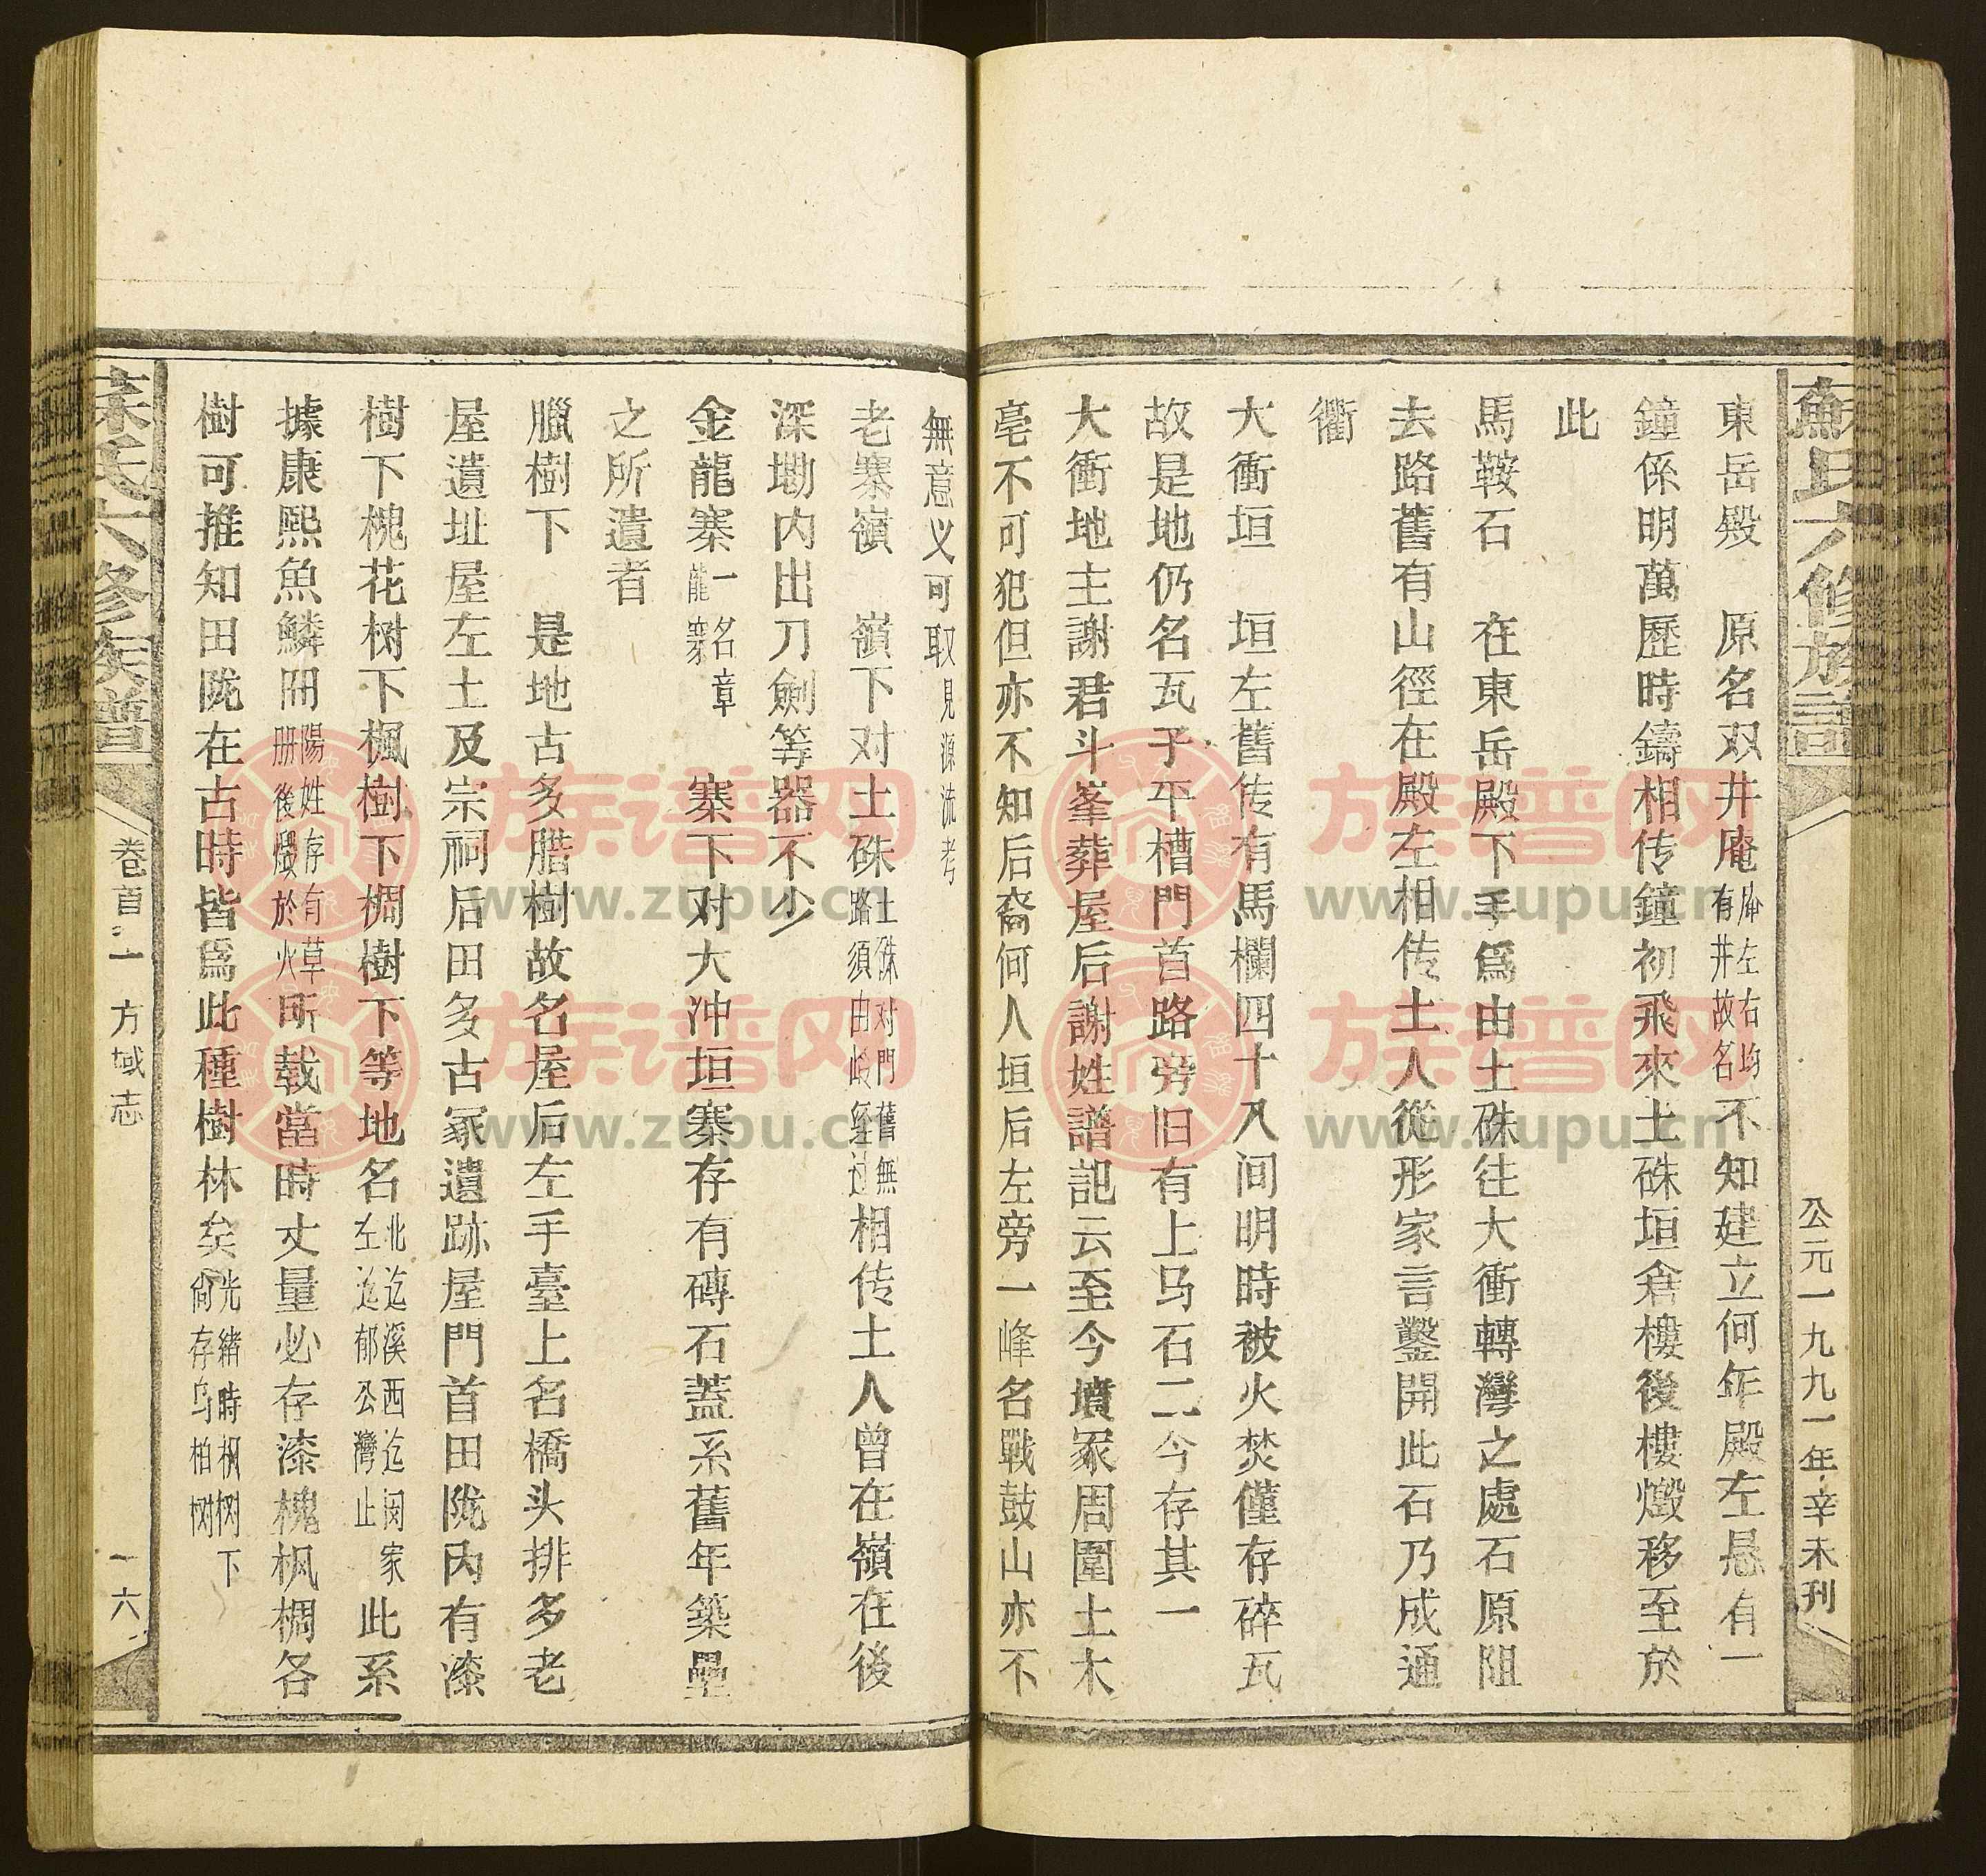 蘇氏六修族譜
公元一九九一年辛未刊
東岳殿　原名双井庵庵左右均有井故名不知建立何年殿左悬有一
鐘係明萬歷時鑄相传鐘初飛來土硃垣倉樓後樓燬移至於
此
馬鞍石　在東岳殿下手爲由土硃往大衝轉灣之處石原阻
去路舊有山徑在殿左相传土人從形家言鑿開此石乃成通
衢
大衝垣　垣左舊传有馬欄四十八间明時被火焚僅存碎瓦
故是地仍名瓦子平槽門首路旁旧有上马石二今存其一
大衝地主謝君斗峯葬屋后謝姓譜記云至今墳冢周圍土木
亳不可犯但亦不知后裔何人垣后左旁一峰名戰鼓山亦不
無意义可取見源流考
老寨嶺　嶺下对土硃土硃对門舊無路須由嶺經过相传土人曾在嶺在後
深坳内出刀劍等器不少
金龍寨一名章龍寨　寨下对大冲垣寨存有磚石蓋系舊年築壘
之所遺者
臘樹下　是地古多腊樹故名屋后左手臺上名橋头排多老
屋遺址屋左土及宗祠后田多古冢遺跡屋門首田陇内有漆
樹下槐花树下楓樹下椆樹下等地名北迄溪西迄闵家左迄郁公灣止此系
據康熙魚鱗冊陽姓存有草册後燬於火所载當時丈量必存漆槐枫椆各
樹可推知田陇在古時皆爲此種樹林矣光緒時枫树下尚存乌柏树
蘇氏六修族譜
卷首一方域志
一六
族谱网
www.zupu.cn
族谱网
www.zupu.cn
族谱网
www.zupu.cn
族谱网
www.zupu.cn